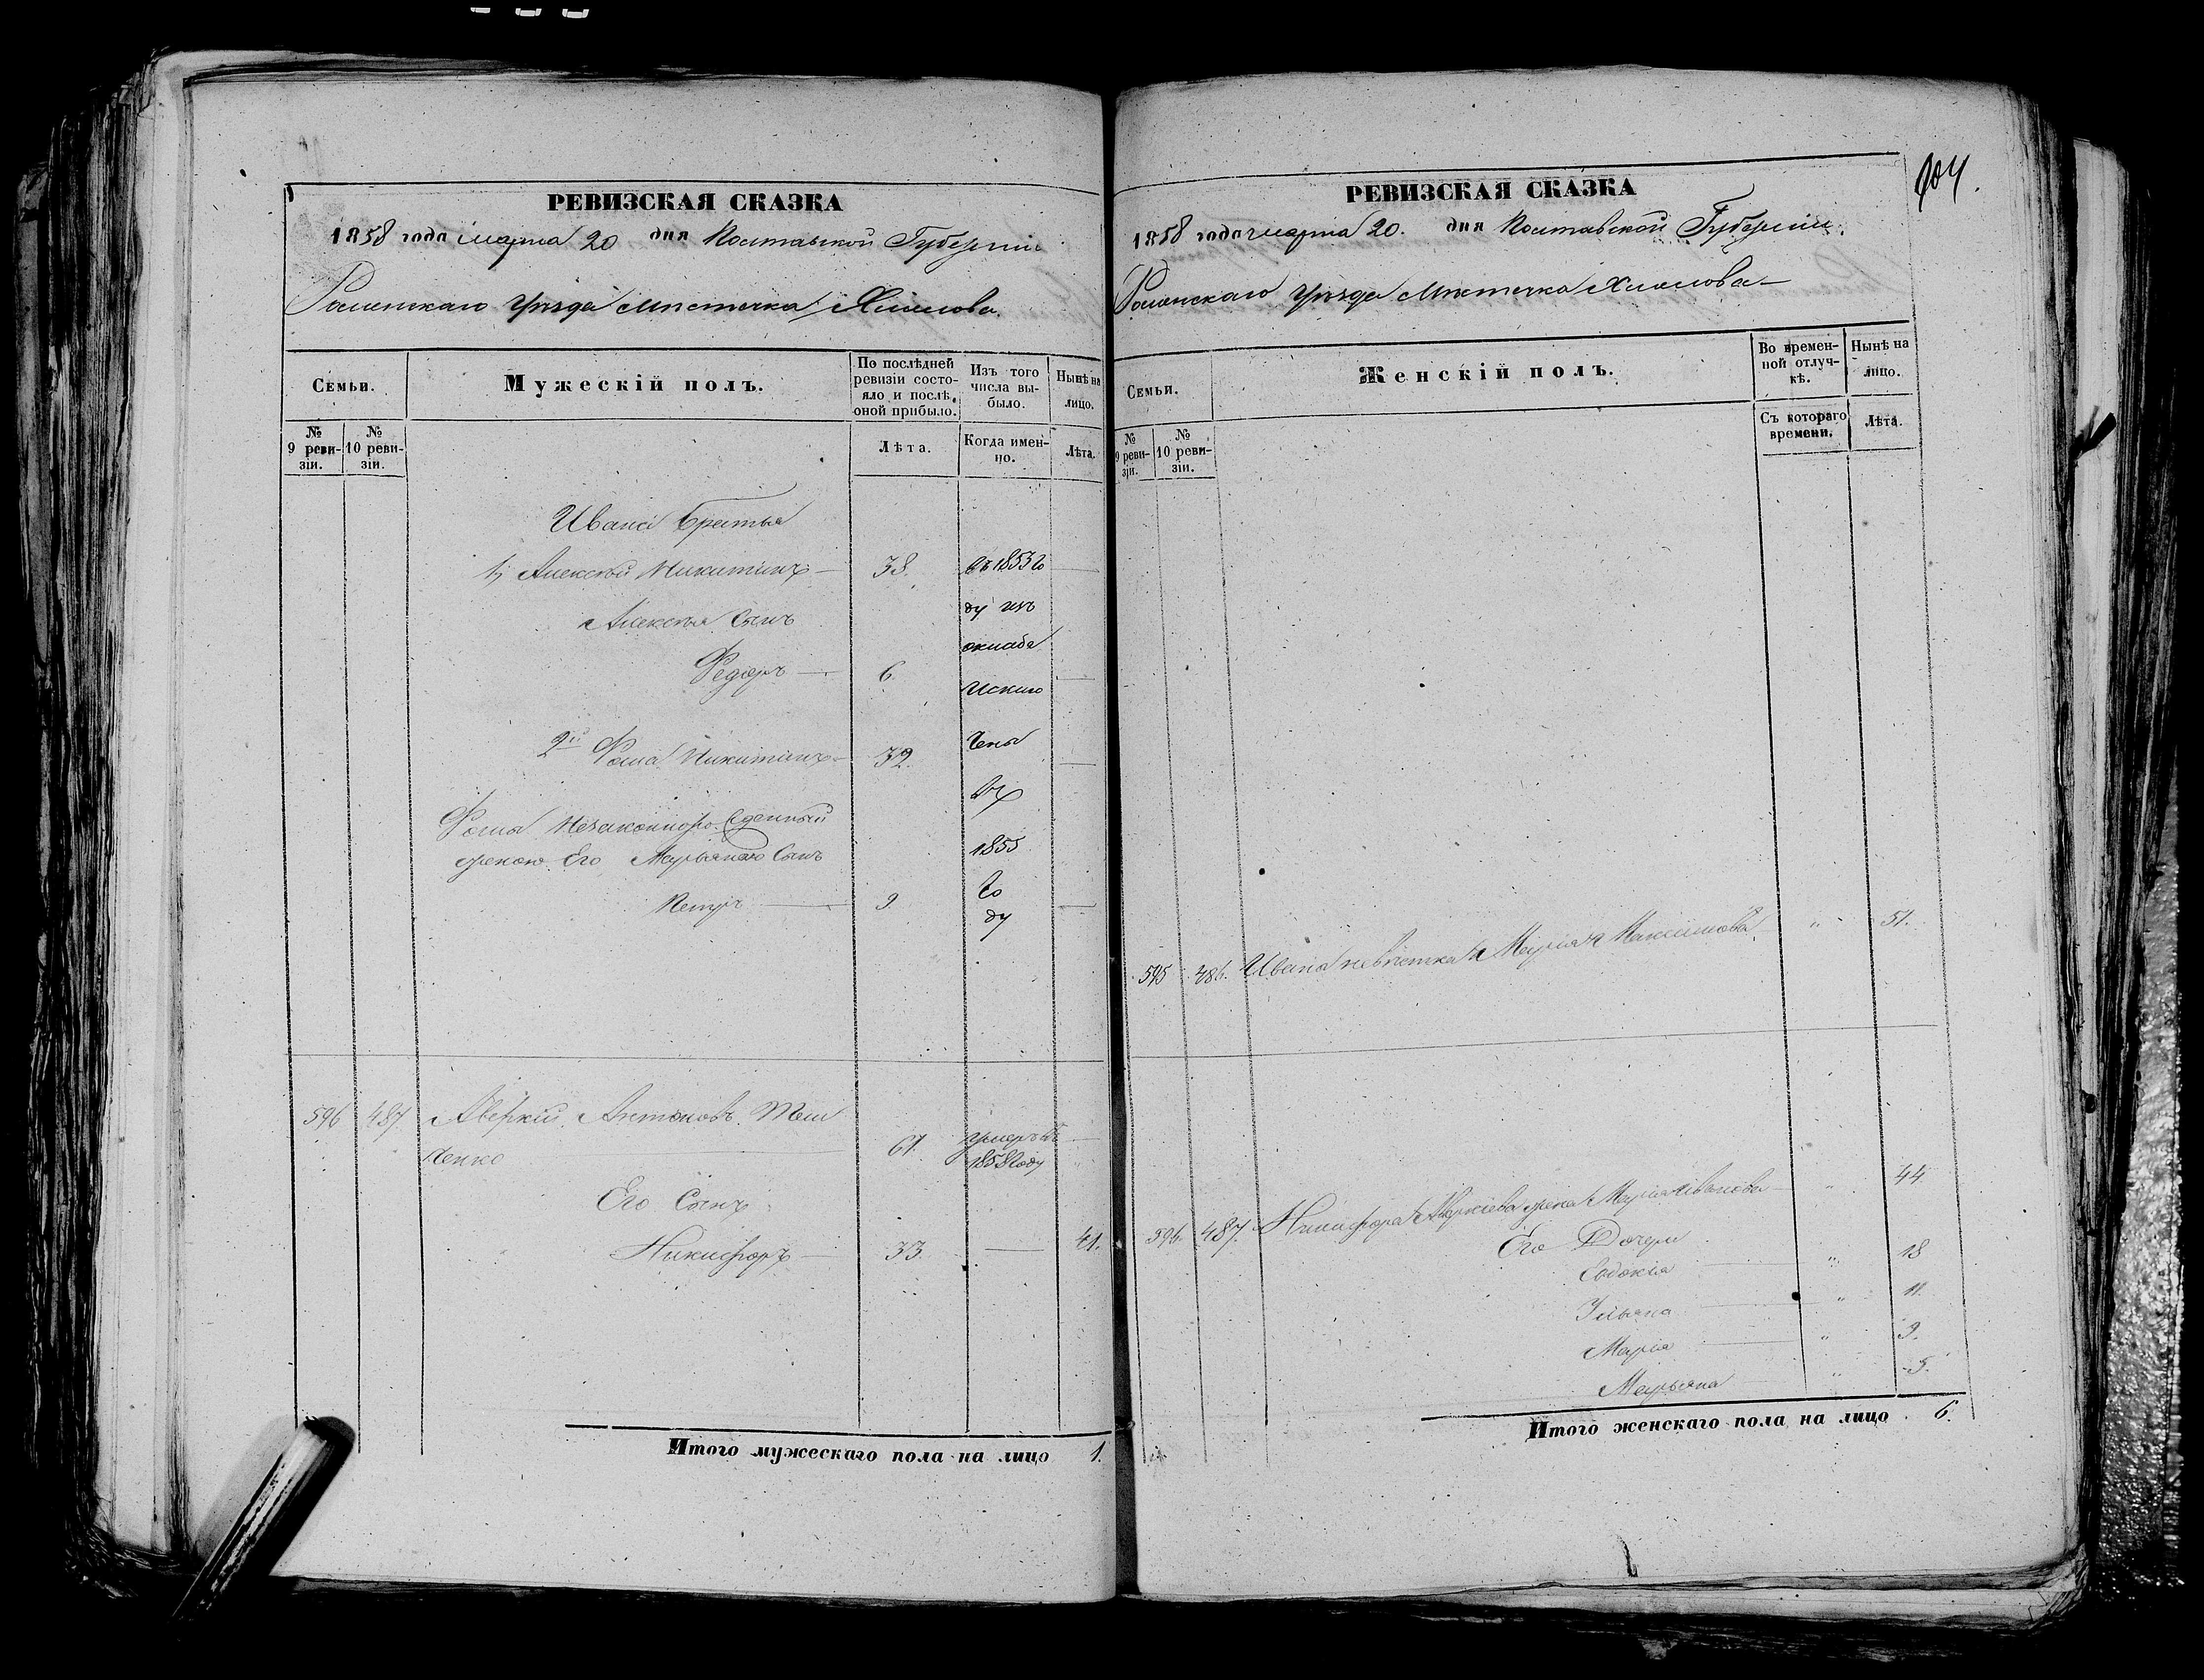 РЕВИЗСКАЯ СКАЗКА
1858 года марта 20 дня Полтавской Губерніи
Роменскаго Уѣзда Мѣстечка Хмелова
Семьи.
Мужескій полъ.
По послѣдней ревизіи состояло и послѣ оной прибыло.
Изъ того числа выбыло.
Нынѣ на лицо.
№ 9 ревизіи.
№ 10 ревизіи.
Лѣта.
Когда именно.
Лѣта.
Ивана братья
1й Алексѣй Никитинъ 38. въ 1853 го
ду изъ
Алексѣя Сынъ оклада
Федоръ 6. Исклю
2й Фома Никитинъ 32. чены
въ
Фомы Незаконнорожденный 1855
женою Его Марьяною Сынъ го
Петръ 9. ду
596 487 Аверкій Антоновъ Теш
ленко 61. умеръ въ 1858 году
Его Сынъ
Никифоръ 33. 41.
Итого мужескаго пола на лицо 1.
104.
РЕВИЗСКАЯ СКАЗКА
1858 года марта 20. дня Полтавской Губерніи.
Роменскаго Уѣзда Мѣстечка Хмелова
Семьи.
Женскій полъ.
Во временной отлучкѣ.
Нынѣ на лицо.
№ 9 ревизіи.
№ 10 ревизіи.
Съ котораго времени.
Лѣта.
595 486. Ивана невѣстка Марія Максимова " 51.
596. 487. Никифора Аверкіева жена Марія Иванова " 44
Его Дочери
Евдокія " 18
Ульяна " 11.
Марія " 9.
Марьяна " 5.
Итого женскаго пола на лицо 6.